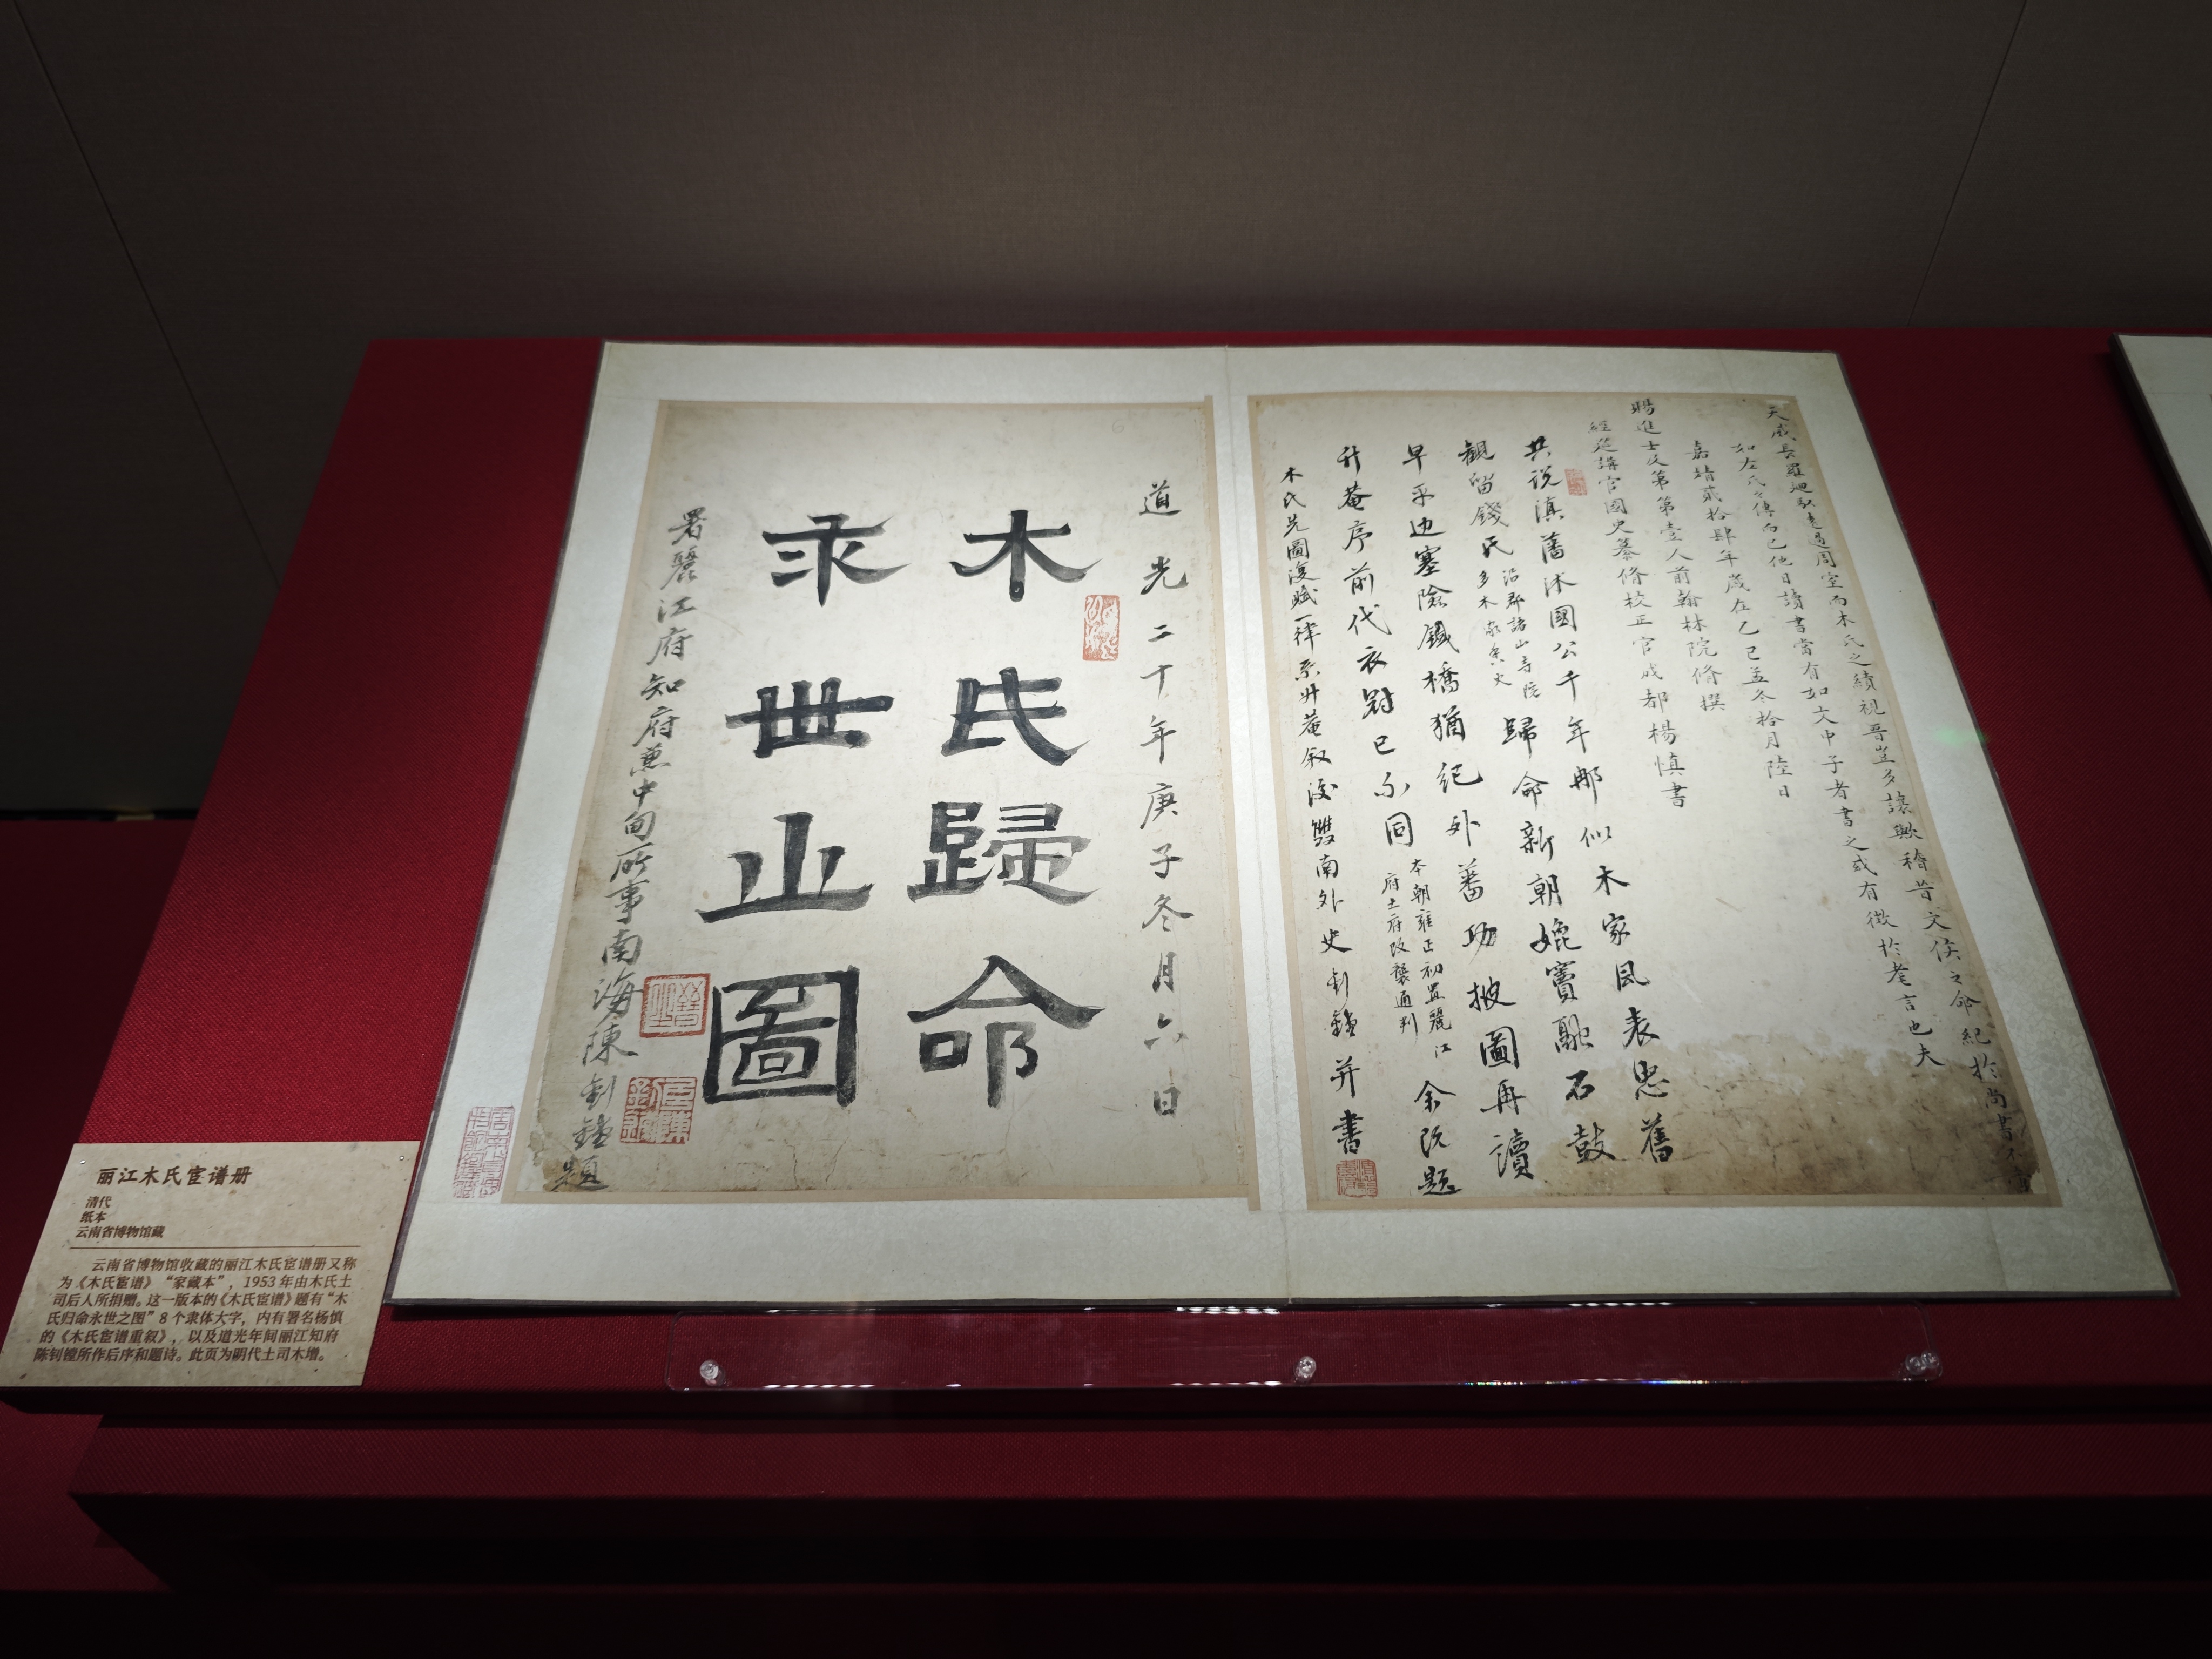 天威長羅迦馭遠過周室而木氏之績視晉豈多讓歟稽昔文侯之命紀於尚書不
如左氏之傳而已他日讀書當有如文中子者書之或有徵於老言也夫
嘉靖貳拾肆年歲在乙巳孟冬拾月陸日
賜進士及第第壹人前翰林院脩撰
經筵講官國史纂脩校正官成都楊慎書
共説滇藩沐國公千年那似木家風表忠舊
觀留錢氏沿郡諸山寺院多木家香火歸命新朝媲竇融石鼓
早平边塞險鐵橋猶紀外蕃功披圖再讀
升菴序前代衣冠已不同本朝雍正初置麗江府土府改襲通判余阮題
木氏光圖復賦一律系升菴叙後雙南外史釗鏜并書
道光二十年庚子冬月六日
木氏歸命
永世之圖
署麗江府知府兼中甸所事南海陳釗鏜題
丽江木氏宦谱册
清代
纸本
云南省博物馆藏
云南省博物馆收藏的丽江木氏宦谱册又称
为《木氏宦谱》“家藏本”，1953年由木氏土
司后人所捐赠。这一版本的《木氏宦谱》题有“木
氏归命永世之图”8个隶体大字，内有署名杨慎
的《木氏宦谱重叙》，以及道光年间丽江知府
陈钊镗所作后序和题诗。此页为明代土司木增。